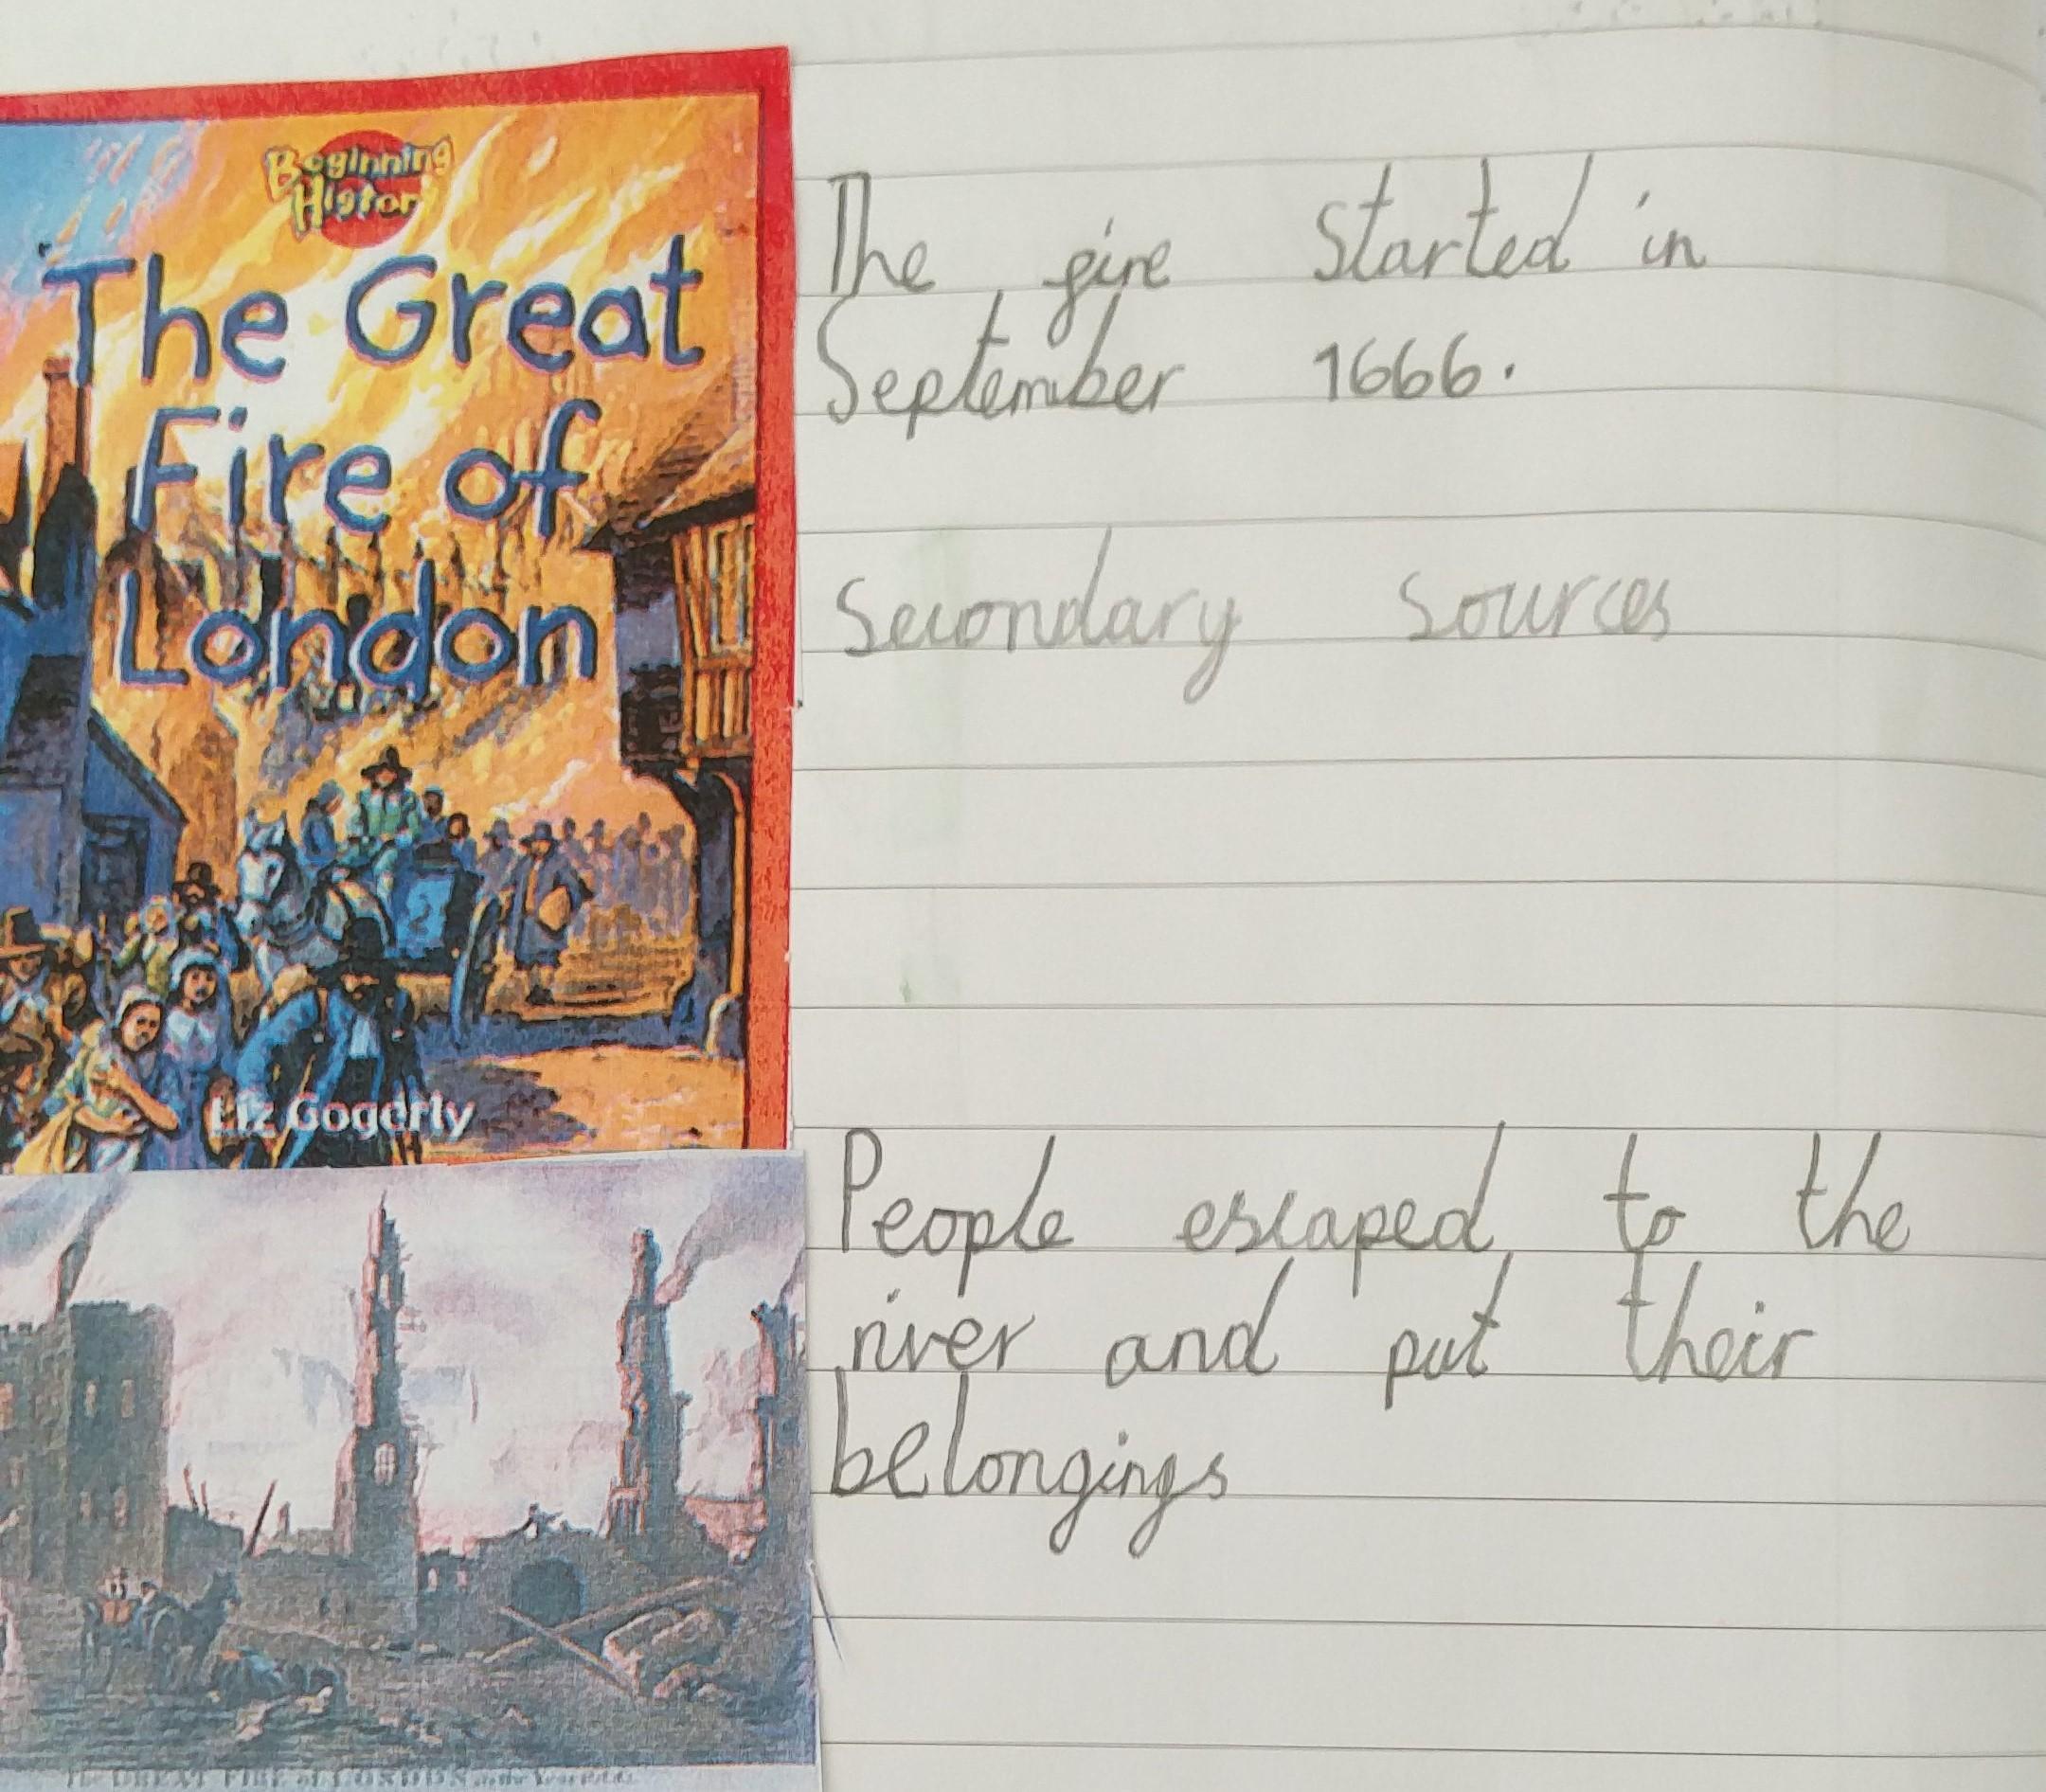 Beginning
History
The Great
Fire of
London
Liz Gogerly
The fire started in
September 1666.
Secondary sources
People escaped to the
river and put their
belongings
The GREAT FIRE of LONDON in the Year